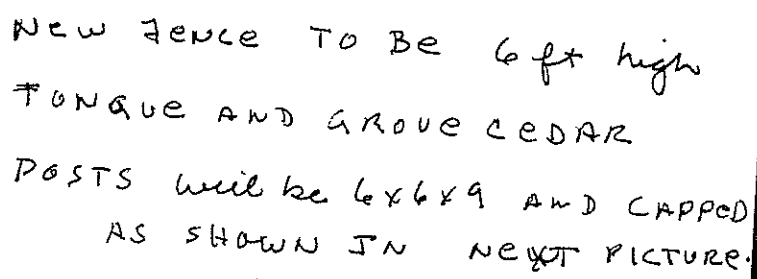 New Fence To Be 6 ft high
TONGUE AND GROVE CEDAR
POSTS will be 6x6x9 AND CAPPED
AS SHOWN IN NEXT PICTURE.